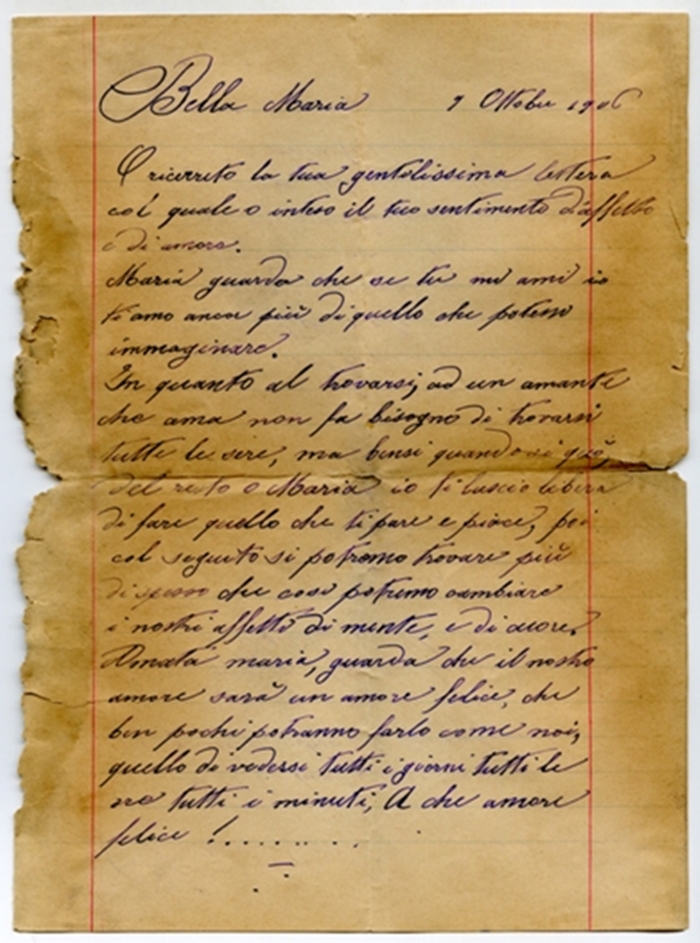 Bella Maria 9 Ottobre 1906
O ricevuto la tua gentilissima lettera
col quale o inteso il tuo sentimento d'affetto
e di amore.
Maria guarda che se tu mi ami io
ti amo ancor più di quello che potessi
immaginare.
In quanto al trovarsi, ad un amante
che ama non fa bisogno di trovarsi
tutte le sere, ma bensi quando si può,
del resto o Maria io ti lascio libera
di fare quello che ti pare e piace, poi
col seguito si potremo trovare più
di spesso che cosi potremo cambiare
i nostri affetti di mente, e di cuore.
Amata maria, guarda che il nostro
amore sarà un amore felice, che
ben pochi potranno farlo come noi,
quello di vedersi tutti i giorni tutti le
ore tutti i minuti, A che amore
felice !........